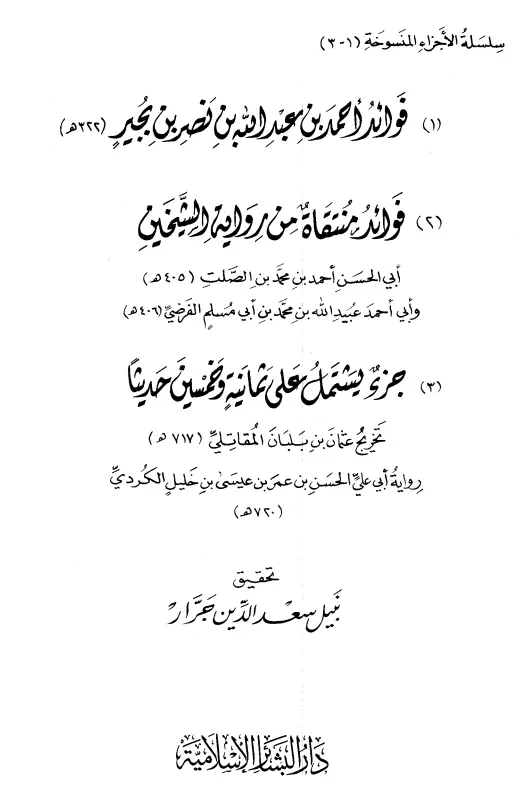 سِلسَلةُ الأجزاءِ المنسوخَةِ (١-٣)
(١) فَوائدُ أحمد بن عبد الله بن نصر بن بُجيرٍ (٣٢٢هـ)
(٢) فَوائدُ مُنتقاةٌ من روايةِ الشَّيخَينِ
أبي الحسَن أحمد بن محمَّد بن الصَّلتِ (٤٠٥هـ)
وأبي أحمدَ عبيد الله بن محمَّد بن أبي مسلم الفرضيِّ (٤٠٦هـ)
(٣) جزءٌ يشتملُ على ثمانيةٍ وخمسين حديثًا
تخريجُ عثمان بن بلبان المقاتليِّ (٧١٧هـ)
روايةُ أبي عليٍّ الحسَن بن عمر بن عيسىٰ بن خليل الكرديِّ
(٧٢٠هـ)
تحقيق
نبيل سعد الدِّين جَرَّار
دَارُ البشائر الإسلاميَّة